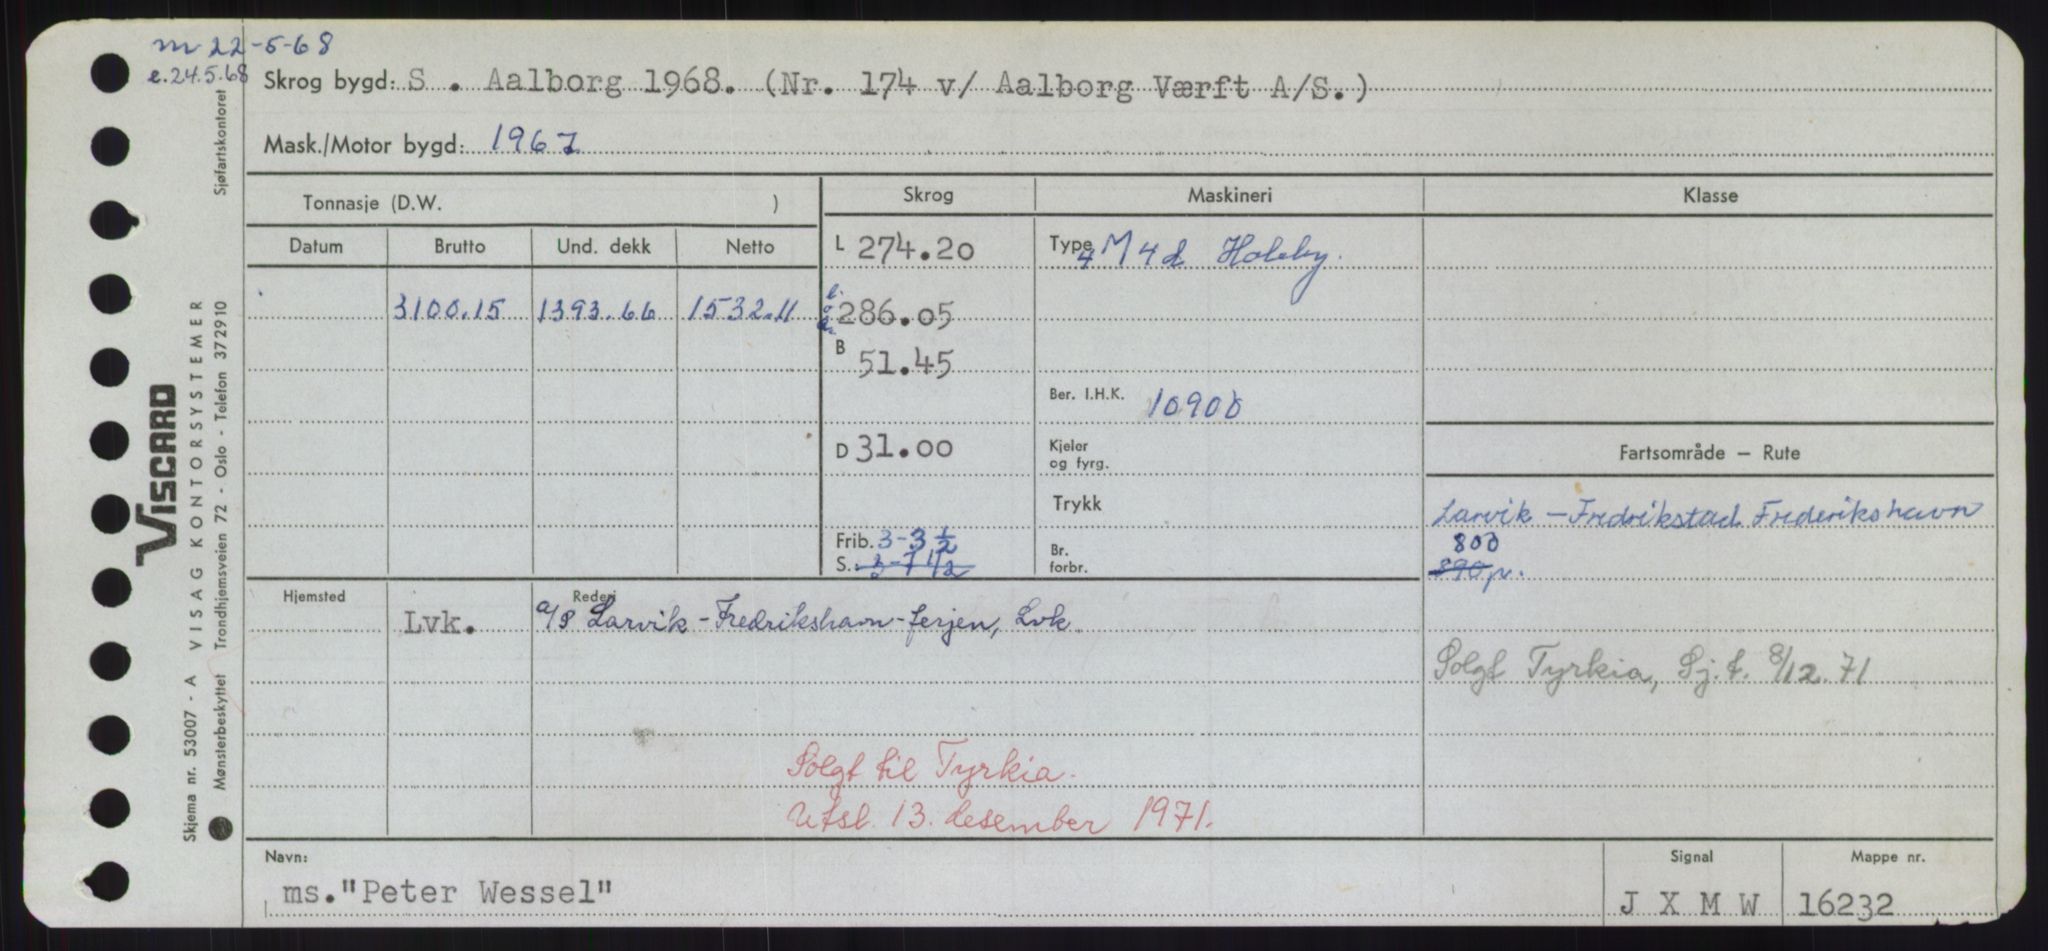 m 22-5-68
e. 24.5.68
Skrog bygd: S. Aalborg 1968. (Nr. 174 v/ Aalborg Værft A/S.)
Mask./Motor bygd: 1967
Tonnasje (D.W. )
Skrog Maskineri Klasse
Datum Brutto Und. dekk Netto
L 274.20
Type 4 M 4 d Holeby.
3100.15 1393.66 1532.11
286.05
B 51.45
Ber. I.H.K. 10900
D 31.00
Kjeler og fyrg.
Fartsområde – Rute
Trykk
Larvik – Fredrikstad Frederikshavn
Frib. 3-3 1/2
S. 3-7 1/2
Br. forbr.
800
390 p.
Hjemsted Rederi
Lvk. A/S Larvik-Fredrikshavn-ferjen, Lvk
Solgt Tyrkia, Sj.t. 8/12.71
Solgt til Tyrkia.
Utsl. 13. desember 1971.
Navn: Signal Mappe nr.
ms. "Peter Wessel" J X M W 16232
VISCARD
VISAG KONTORSYSTEMER
Skjema nr. 53007 - A
Mønsterbeskyttet Trondhjemsveien 72 - Oslo - Telefon 372910 Sjøfartskontoret